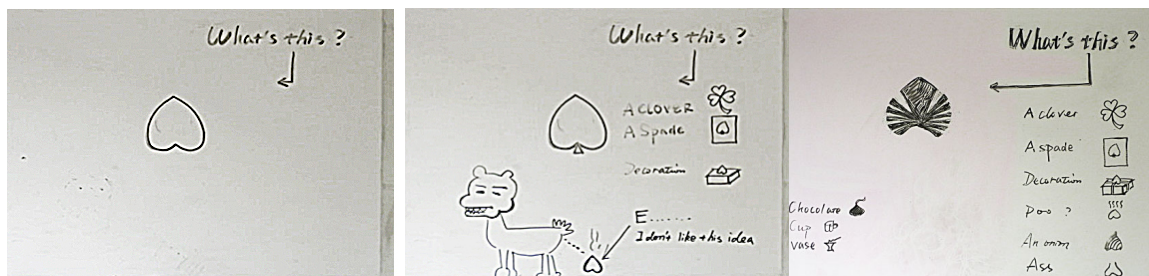 What's this ?
What's this ?
A CLOVER
A Spade
Decoration
E.......
I don't like this idea
What's this ?
A clover
A spade
Decoration
Poo ?
An onion
Ass
Chocolate
Cup
Vase